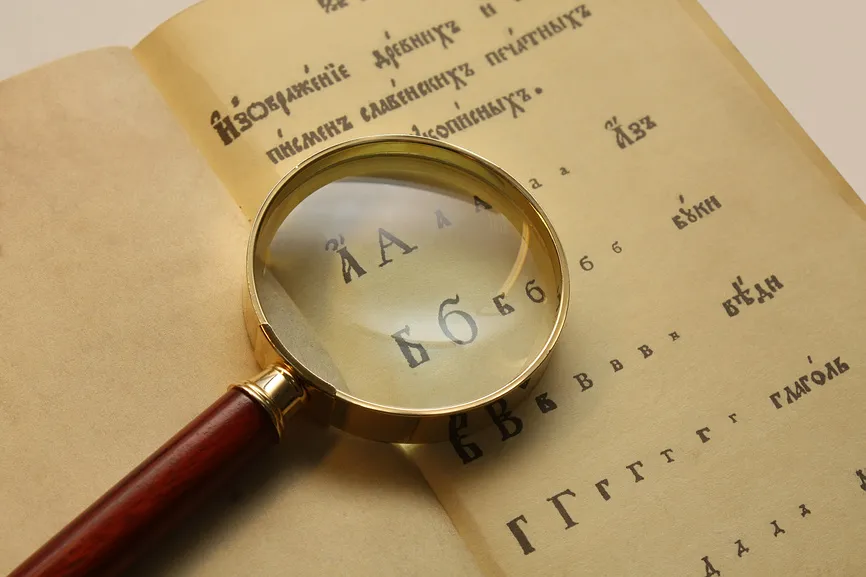 Изѡбраже́нїе дре́внихъ и
пи́сменъ славе́нскихъ печа́тныхъ
А́ А а А а а А́зъ
Б Б б б б б Бꙋ́ки
В В в в в в в Вѣ́ди
Г Г г г т г г Глаго́ль
Д д д д